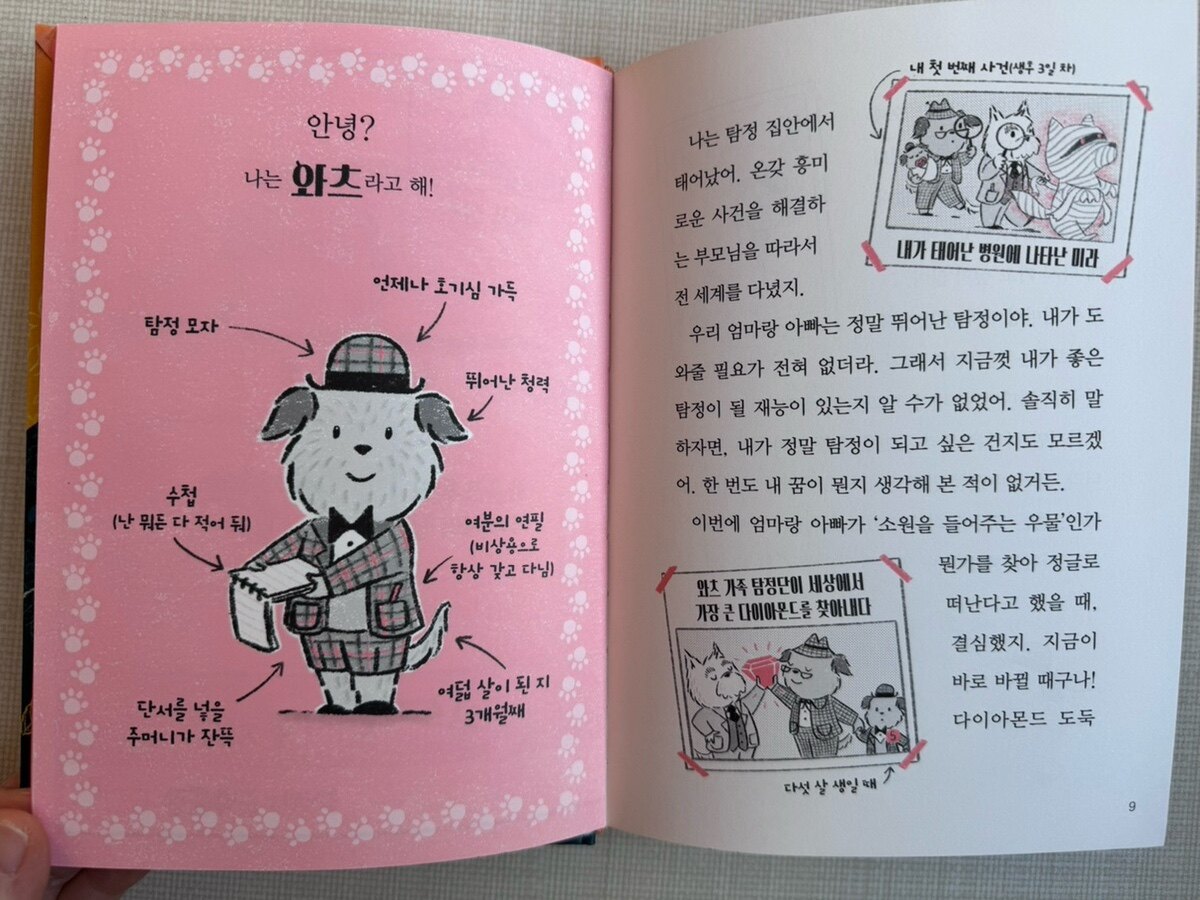 안녕?
나는 와츠라고 해!
언제나 호기심 가득
탐정 모자
뛰어난 청력
수첩
(난 뭐든 다 적어 둬)
여분의 연필
(비상용으로
항상 갖고 다님)
단서를 넣을
주머니가 잔뜩
여덟 살이 된 지
3개월째
내 첫 번째 사건(생후 3일 차)
내가 태어난 병원에 나타난 미라
나는 탐정 집안에서
태어났어. 온갖 흥미
로운 사건을 해결하
는 부모님을 따라서
전 세계를 다녔지.
우리 엄마랑 아빠는 정말 뛰어난 탐정이야. 내가 도
와줄 필요가 전혀 없더라. 그래서 지금껏 내가 좋은
탐정이 될 재능이 있는지 알 수가 없었어. 솔직히 말
하자면, 내가 정말 탐정이 되고 싶은 건지도 모르겠
어. 한 번도 내 꿈이 뭔지 생각해 본 적이 없거든.
이번에 엄마랑 아빠가 ‘소원을 들어주는 우물’인가
뭔가를 찾아 정글로
떠난다고 했을 때,
결심했지. 지금이
바로 바뀔 때구나!
다이아몬드 도둑
와츠 가족 탐정단이 세상에서
가장 큰 다이아몬드를 찾아내다
5
다섯 살 생일 때
9